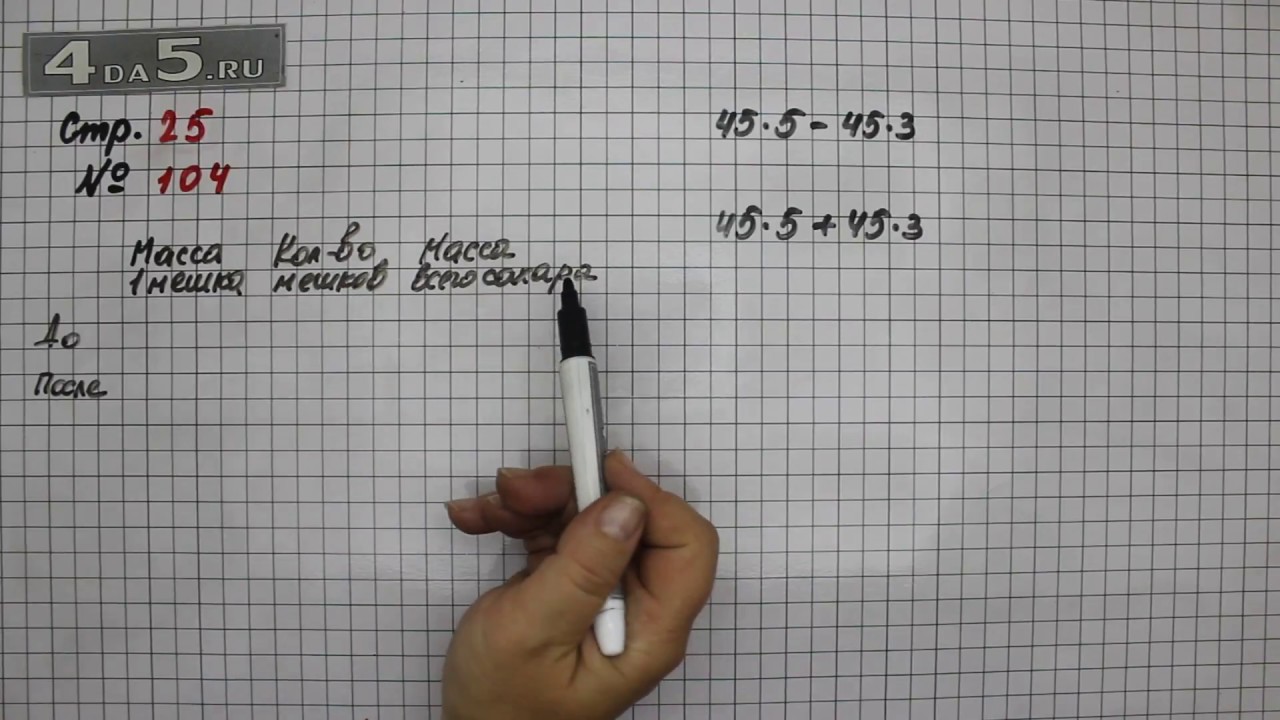 4DA5.RU
Стр. 25
№ 104
45·5 - 45·3
45·5 + 45·3
Масса Кол-во Масса
1 мешка мешков всего сахара
До
После